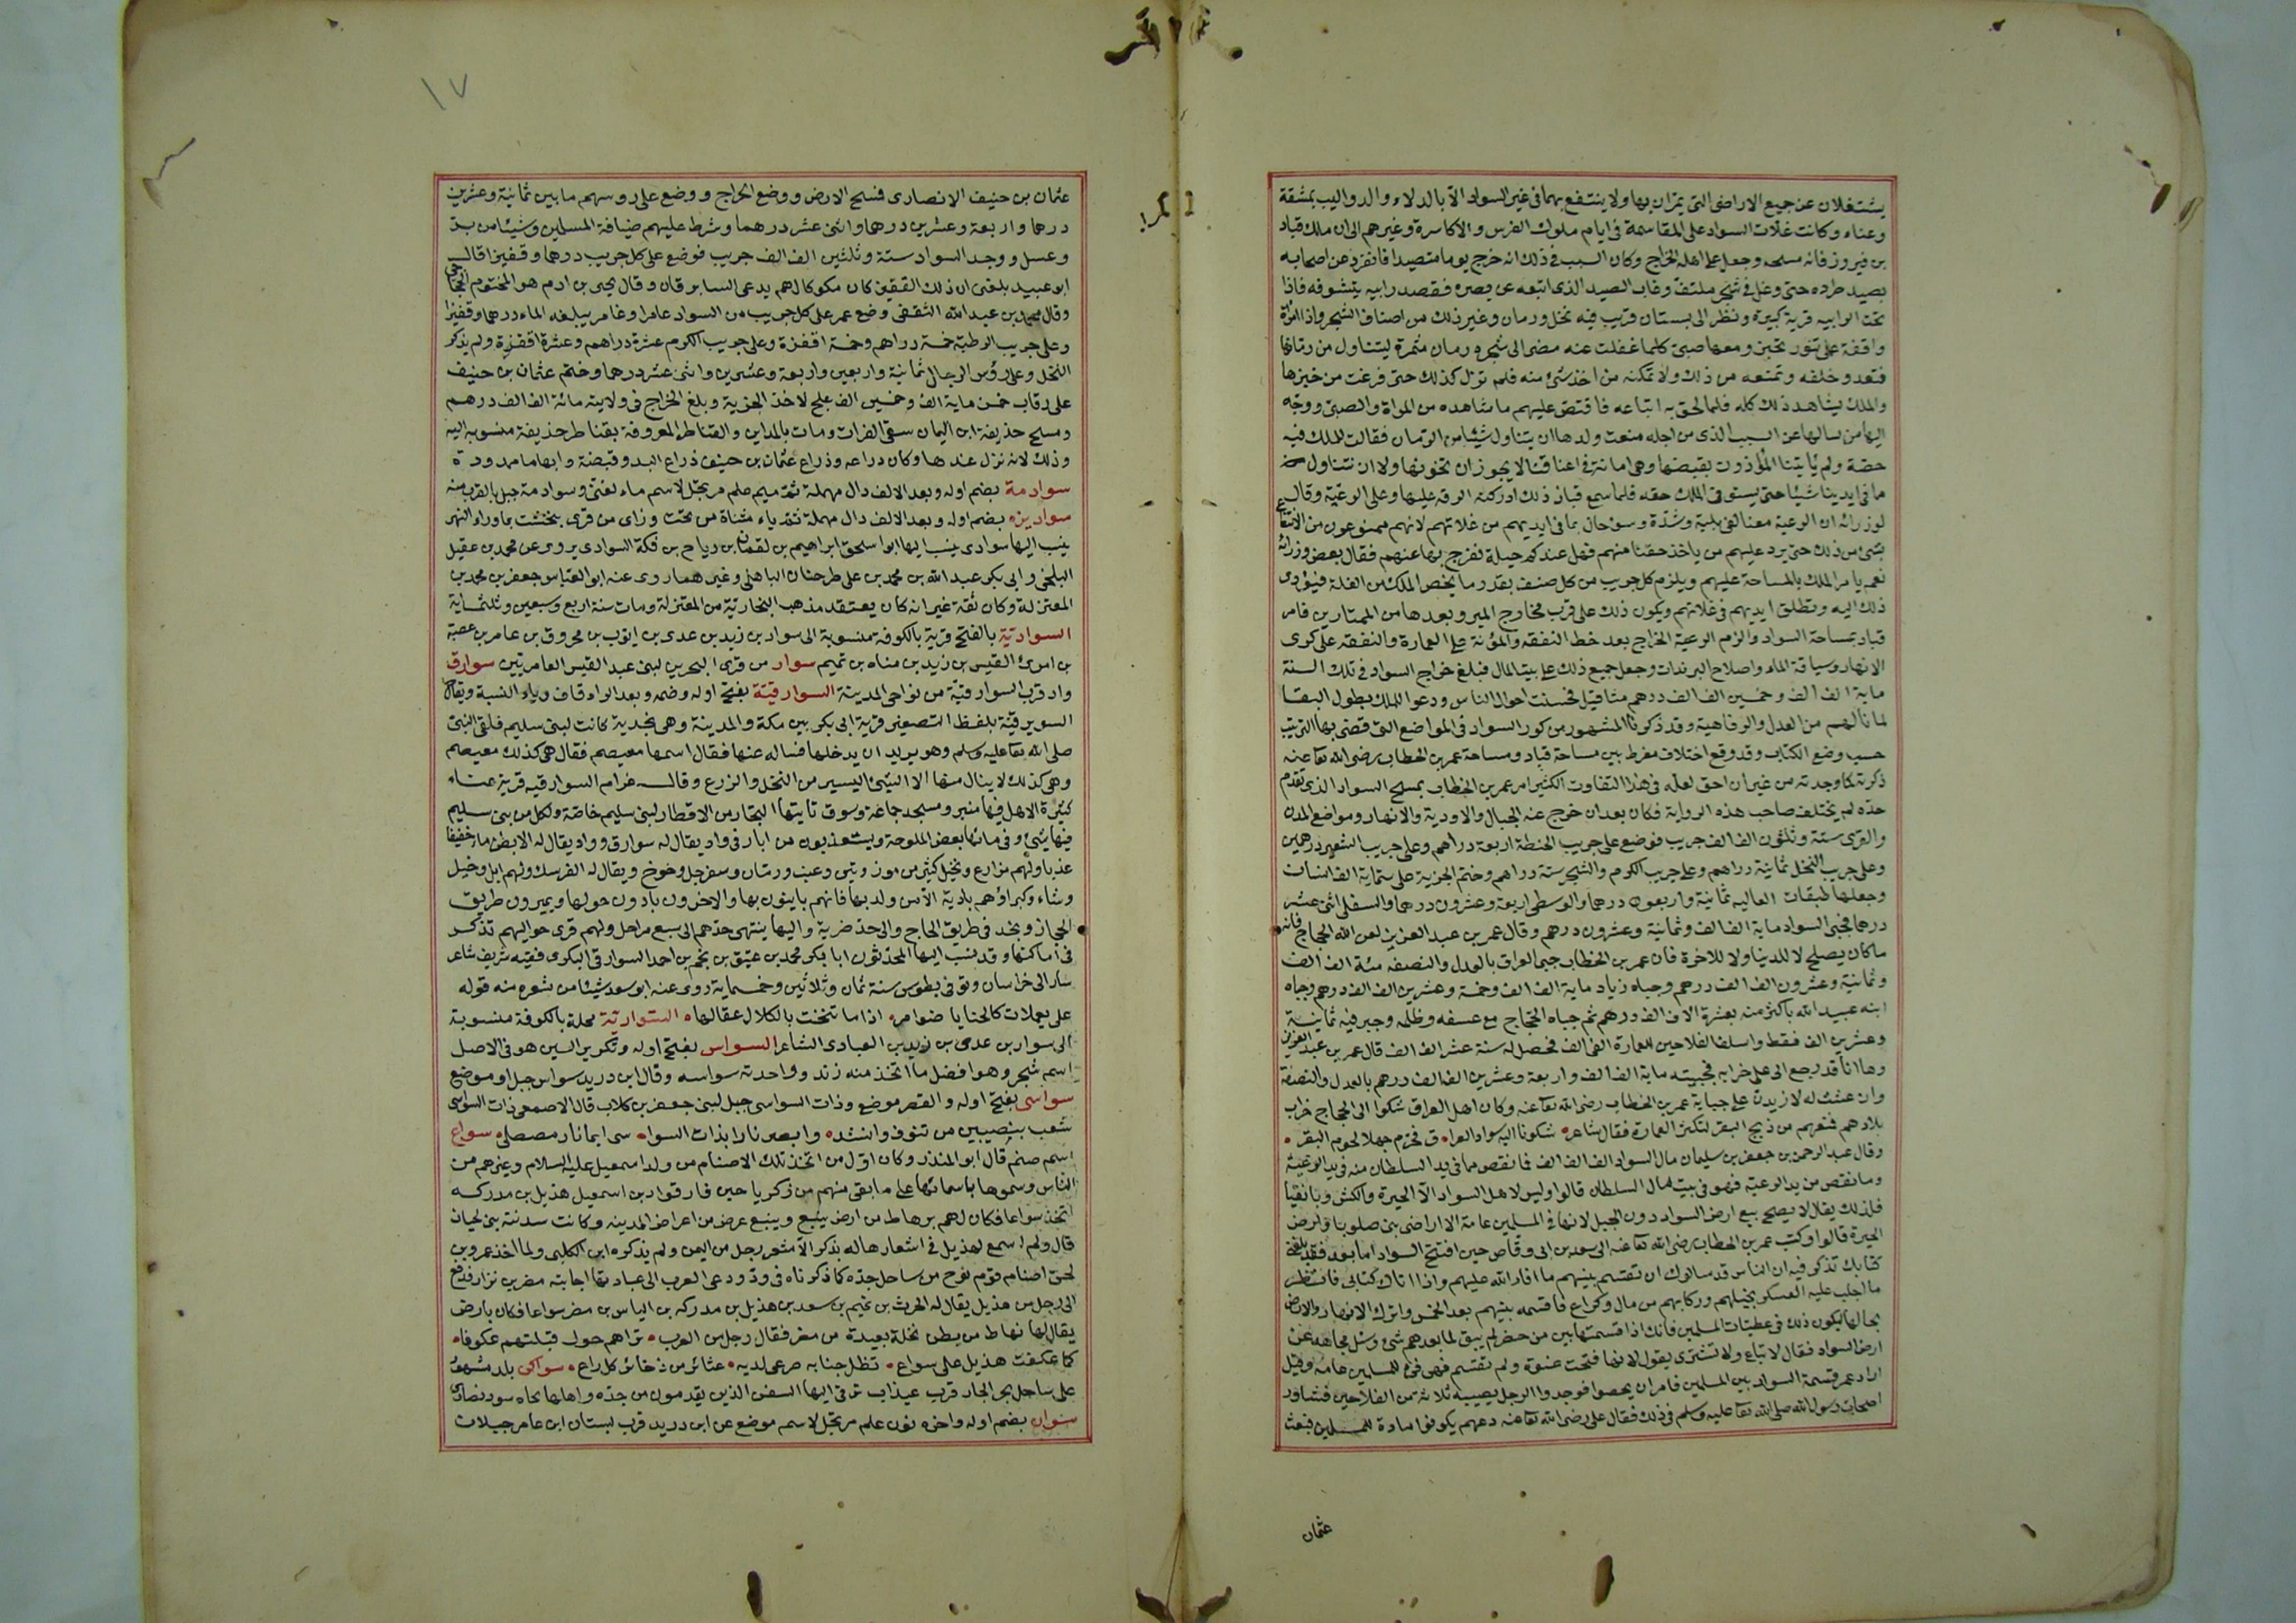 يشتغلان عن جميع الاراضى التى يمران بها ولا ينتفع بهما فى غير السواد الا بالدلاء والدواليب بمشقة
وعناء وكانت غلات السواد على المقاسمة فى ايام ملوك الفرس والاكاسرة وغيرهم الى ان ملك قباد
بن فيروز فانه مسحه وجعل على اهله الخراج وكان السبب فى ذلك انه خرج يوما متصيدا فانفرد عن اصحابه
بصيد طرده حتى وغل فى شجر ملتف وغاب الصيد الذى اتبعه عن بصره فقصد رابيه يتشوفه فاذا
تحت الرابيه قرية كبيرة ونظر الى بستان قريب فيه نخل ورمان وغير ذلك من اصناف الشجر واذا امراة
واقفة على تنور تخبز ومعها صبى كلما غفلت عنه مضى الى شجره رمان مثمرة ليتناول من رمانها
فتعدو خلفه وتمنعه من ذلك ولا تمكنه من اخذ شئ منه فلم تزل كذلك حتى فرغت من خبزها
والملك يشاهد ذلك كله فلما لحق به اتباعه فاقتص عليهم ما شاهده من المراة والصبى ووجه
اليها من سالها عن السبب الذى من اجله منعت ولدها ان يتناول شيئا من الرمان فقالت للملك فيه
حصة ولم يأتينا المأذون بقبضها وهى امانة فى اعناقنا لا يجوز ان نخونها ولا ان نتناول
ما فى ايدينا شيئا حتى يستوفى الملك حقه فلما سمع قباذ ذلك ادركته الرقه عليها وعلى الرعية وقال
لوزرائه ان الرعية معنا لفى بلية وشدة وسوء حال بما فى ايديهم من غلاتهم لانهم ممنوعون من الانتفاع
بشئ من ذلك حتى يرد عليهم من ياخذ حقنا منهم فهل عندكم حيلة نفرج بها عنهم فقال بعض وزرائه
نعم يامر الملك بالمساحة عليهم ويلزم كل جريب من كل صنف بقدر ما يخص الملك من الغلة فيؤدى
ذلك اليه وتطلق ايديهم فى غلاتهم ويكون ذلك على قرب مخارج المير وبعدها من الممتارين فامر
قباد بمساحة السواد والزم الرعية الخراج بعد حط النفقه والمؤنة على العمارة والنفقه على كرى
الانهار وسياقة الماء واصلاح البرندات وجعل جميع ذلك على بيت المال فبلغ خراج السواد فى تلك السنة
ماية الف الف وخمسين الف الف درهم مثاقيل فحسنت احوال الناس ودعوا للملك بطول البقا
لما نالهم من العدل والرفاهية وقد ذكرنا المشهور من كور السواد فى المواضع التى قضى بها الترتيب
حسب وضع الكتاب وقد وقع اختلاف مفرط بين مساحة قباد ومساحة عمر بن الخطاب رضى الله تعا عنه
ذكرته كما وجدته من غير ان احق لعله فى هذا التفاوت الكثير امر عمر بن الخطاب بمسح السواد الذى تقدم
حده لم يختلف صاحب هذه الرواية فكان بعد ان خرج عنه الجبال والاودية والانهار ومواضع المدن
والقرى ستة وثلثون الف الف جريب فوضع على جريب الحنطة اربعة دراهم وعلى جريب الشعير درهمين
وعلى جريب النخل ثمانية دراهم وعلى جريب الكرم والشجر ستة دراهم وختم الجزية على ستماية الف انسان
وجعلها طبقات العاليه ثمانية واربعون درهما والوسطى اربعة وعشرون درهما والسفلى اثنى عشر
درهما فجبى السواد ماية الف الف وثمانية وعشرون درهم وقال عمر بن عبد العزيز لعن الله الحجاج فانه
ما كان يصلح لا للدنيا ولا للاخرة فان عمر بن الخطاب جبى العراق بالعدل والنصفه مئة الف الف
وثمانية وعشرون الف الف درهم وجباه زياد ماية الف الف وخمسة وعشرين الف الف درهم وجباه
ابنه عبيد الله باكثر منه بعشرة الاف الف درهم ثم جباه الحجاج مع عسفه وظلمه وجبر فيه ثمانية
وعشرين الف فقط واسلف الفلاحين للعمارة الفى الف فحصل له ستة عشر الف الف قال عمر بن عبد العزيز
وها انا قد رجع الى على خرابه فجبيته ماية الف الف واربعة وعشرين الف الف درهم بالعدل والنصفة
وان عشت له لازيدن على جباية عمر بن الخطاب رضى الله تعا عنه وكان اهل العراق شكوا الى الحجاج خراب
بلادهم فمنعهم من ذبح البقر لتكثر العمارة فقال شاعره شكونا اليه سواد العراق فحرم جهلا لحوم البقر
وقال عبد الرحمن بن جعفر بن سليمان مال السواد الف الف الف فما نقص مما فى يد السلطان منه فى يد الرعية
وما نقص من يد الرعية فهو فى بيت مال السلطان قالوا وليس لاهل السواد الا الحيرة والكش وبانقيا
فلذلك يقال لا يصح بيع ارض السواد دون الجبل لانها فى المسلمين عامة الا اراضى بنى صلوبا وارض
الحيرة قالوا وكتب عمر بن الخطاب رضى الله تعا عنه الى سعد بن ابى وقاص حين افتتح السواد اما بعد فقد بلغنى
كتابك تذكر فيه ان الناس قد سالوك ان تقسم بينهم ما افاء الله عليهم واذا اتاك كتابى فانظر
ما اجلب عليه العسكر بخيلهم وركابهم من مال وكراع فاقسمه بينهم بعد الخمس واترك الانهار والارض
بحالها ليكون ذلك فى عطيات المسلمين فانك اذا قسمتها بين من حضر لم يبق لمن بعدهم شئ وسئل مجاهد عن
ارض السواد فقال لا تباع ولا تشترى يقول لانها فتحت عنوة ولم تقسم فهى فئ للمسلمين عامة وقيل
اراد عمر قسمة السواد بين المسلمين فامر ان يحصوا فوجدوا الرجل يصيبه ثلاثة من الفلاحين فشاور
اصحاب رسول الله صلى الله تعا عليه وسلم فى ذلك فقال على رضى الله تعا عنه دعهم يكونوا مادة للمسلمين فبعث
عثمان
١٧
عثمان بن حنيف الانصارى فمسح الارض ووضع الخراج ووضع على روسهم ما بين ثمانية وعشرين
درهما واربعة وعشرين درهما واثنى عشر درهما وشرط عليهم ضيافة المسلمين وشيئا من بر
وعسل ووجد السواد ستة وثلثين الف الف جريب فوضع على كل جريب درهما وقفيزا قال
ابو عبيد بلغنى ان ذلك القفيز كان مكوكا لهم يدعى السابرقان وقال يحيى بن ادم هو المختوم الحجاجى
وقال محمد بن عبد الله الثقفى وضع عمر على كل جريب من السواد عامرا وغامر يبلغه الماء درهما وقفيزا
وعلى جريب الرطبة خمسة دراهم وخمسة اقفزة وعلى جريب الكرم عشرة دراهم وعشرة اقفزة ولم يذكر
النخل وعلى رؤس الرجال ثمانية واربعين واربعة وعشرين واثنى عشر درهما وختم عثمان بن حنيف
على رقاب خمس ماية الف وخمسين الف علج لاخذ الجزية وبلغ الخراج فى ولايته مائة الف الف درهم
ومسح حذيفة ابن اليمان سقى الفرات ومات بالمداين والقناطر المعروفة بقناطر حذيفة منسوبه اليه
وذلك لانه نزل عندها وكان ذراعه وذراع عثمان بن حنيف ذراع اليد وقبضة وابهاما ممدودة
سوادمة بضم اوله وبعد الالف دال مهملة ثم ميم علم مرتجل لاسم ماء لغنى وسوادمة جبل بالقرب منه
سواديزه بضم اوله وبعد الالف دال مهملة ثم ياء مثناة من تحت وزاى من قرى بخشت بما وراء النهر
ينسب اليها سوادى ينسب اليها ابو اسحق ابراهيم بن لقمان بن رياح بن فكة السوادى يروى عن محمد بن عقيل
البلخى وابى بكر عبد الله بن محمد بن على طرخان الباهلى وغيرهما روى عنه ابو العباس جعفر بن محمد بن
المعتزلة وكان ثقة غير انه كان يعتقد مذهب النجارية من المعتزلة ومات سنة اربع وسبعين وثلثماية
السوادية بالفتح قرية بالكوفة منسوبة الى سواد بن زيد بن عدى بن ايوب بن محروق بن عامر بن عصية
بن امرئ القيس بن زيد بن مناه بن تميم سوار من قرى البحرين لبنى عبد القيس العامريين سوارق
واد قرب السوارقية من نواحى المدينة السوارقية بفتح اوله وضمه وبعد الراء قاف وياء النسبة ويقال
السويرقية بلفظ التصغير قرية ابى بكر بين مكة والمدينة وهى نجدية كانت لبنى سليم فلقى النبى
صلى الله تعا عليه وسلم وهو يريد ان يدخلها فساله عنها فقال اسمها معيصم فقال هى كذلك معيصم
وهى كذلك لا ينال منها الا الشئ اليسير من النخل والزرع وقال عرام السوارقيه قرية غناء
كثيرة الاهل فيها منبر ومسجد جماعة وسوق تاتيها التجار من الاقطار لبنى سليم خاصة ولكل من بنى سليم
فيها شئ وفى مائها بعض الملوحة ويستعذبون من ابار فى واد يقال له سوارق وواد يقال له الابطن ماء خفيفا
عذبا ولهم مزارع ونخيل كثير من موز وتين وعنب ورمان وسفرجل وخوخ ويقال له الفرسك ولهم ابل وخيل
وشاء وكبراؤهم بادية الا من ولد بها فانهم باينون بها والاخرون بادون حولها ويميرون طريق
الحجاز ونجد فى طريق الحاج والى حد ضرية واليها ينتهى حدهم الى سبع مراحل ولهم قرى حواليهم تذكر
فى اماكنها وقد نسب اليها المحدثون ابا بكر محمد بن عتيق بن نجم بن احمد السوارقى البكرى فقيه شريف شاعر
سار الى خراسان وتوفى بطوس سنة ثمان وثلاثين وخمسماية روى عنه ابو سعد شيئا من شعره منه قوله
على يعملات كالحنايا ضوامر اذا ما تنخت بالكلال عقالها السوارية محلة بالكوفة منسوبة
الى سوار بن عدى بن زيد بن العبادى الشاعر السواس بفتح اوله وتكرير السين هو فى الاصل
اسم شجر وهو افضل ما اتخذ منه زند وواحدته سواسه وقال ابن دريد سواس جبل او موضع
سواسى بفتح اوله والقصر موضع وذات السواسى جبل لبنى جعفر بن كلاب قال الاصمعى ذات السواسى
شعب بنصيبين من تنوف وانشد وابصر نارا بذات السوا سى ايما نار مصطلى سواع
اسم صنم قال ابو المنذر وكان اول من اتخذ تلك الاصنام من ولد اسمعيل عليه السلام وغيرهم من
الناس وسموها باسمائها على ما بقى منهم من ذكر يا حين فارقوا دين اسمعيل هذيل بن مدركه
اتخذ سواعا فكان لهم برهاط من ارض ينبع وينبع عرض من اعراض المدينه وكانت سدنته بنى لحيان
قال ولم اسمع لهذيل فى اشعارها له بذكر الا شعر رجل من اليمن ولم يذكره ابن الكلبى ولما اخذ عمرو بن
لحى اصنام قوم نوح من ساحل جده كما ذكرناه فى ود ودعى العرب الى عبادتها اجابته مضر بن نزار فدفع
الى رجل من هذيل يقال له الحرث بن تميم بن سعد بن هذيل بن مدركه بن الياس بن مضر سواعا فكان بارض
يقال لها رهاط من بطن نخلة يعبده من مضر فقال رجل من العرب تراهم حول قبلتهم عكوفا
كما عكفت هذيل على سواع تظل جنابه صرعى لديه عتائر من ذخائر كل راع سواكن بلد مشهور
على ساحل بحر الجار قرب عيذاب ترفى اليها السفن الذين يقدمون من جده واهلها بجاه سود نصارى
سوان بضم اوله واخره نون علم مرتجل لاسم موضع عن ابن دريد قرب بستان ابن عامر جبلان